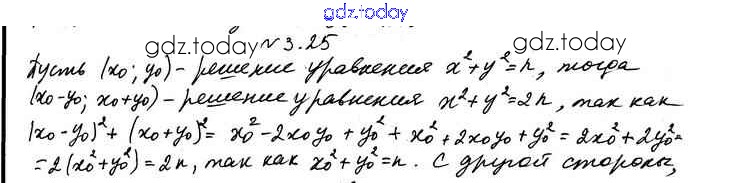 gdz.today
gdz.today №3.25 gdz.today
Пусть (x₀; y₀) – решение уравнения x²+y²=n, тогда
(x₀-y₀; x₀+y₀) – решение уравнения x²+y²=2n, так как
(x₀-y₀)²+(x₀+y₀)²= x₀²-2x₀y₀+y₀²+x₀²+2x₀y₀+y₀²=2x₀²+2y₀²=
=2(x₀²+y₀²)=2n, так как x₀²+y₀²=n. С другой стороны,